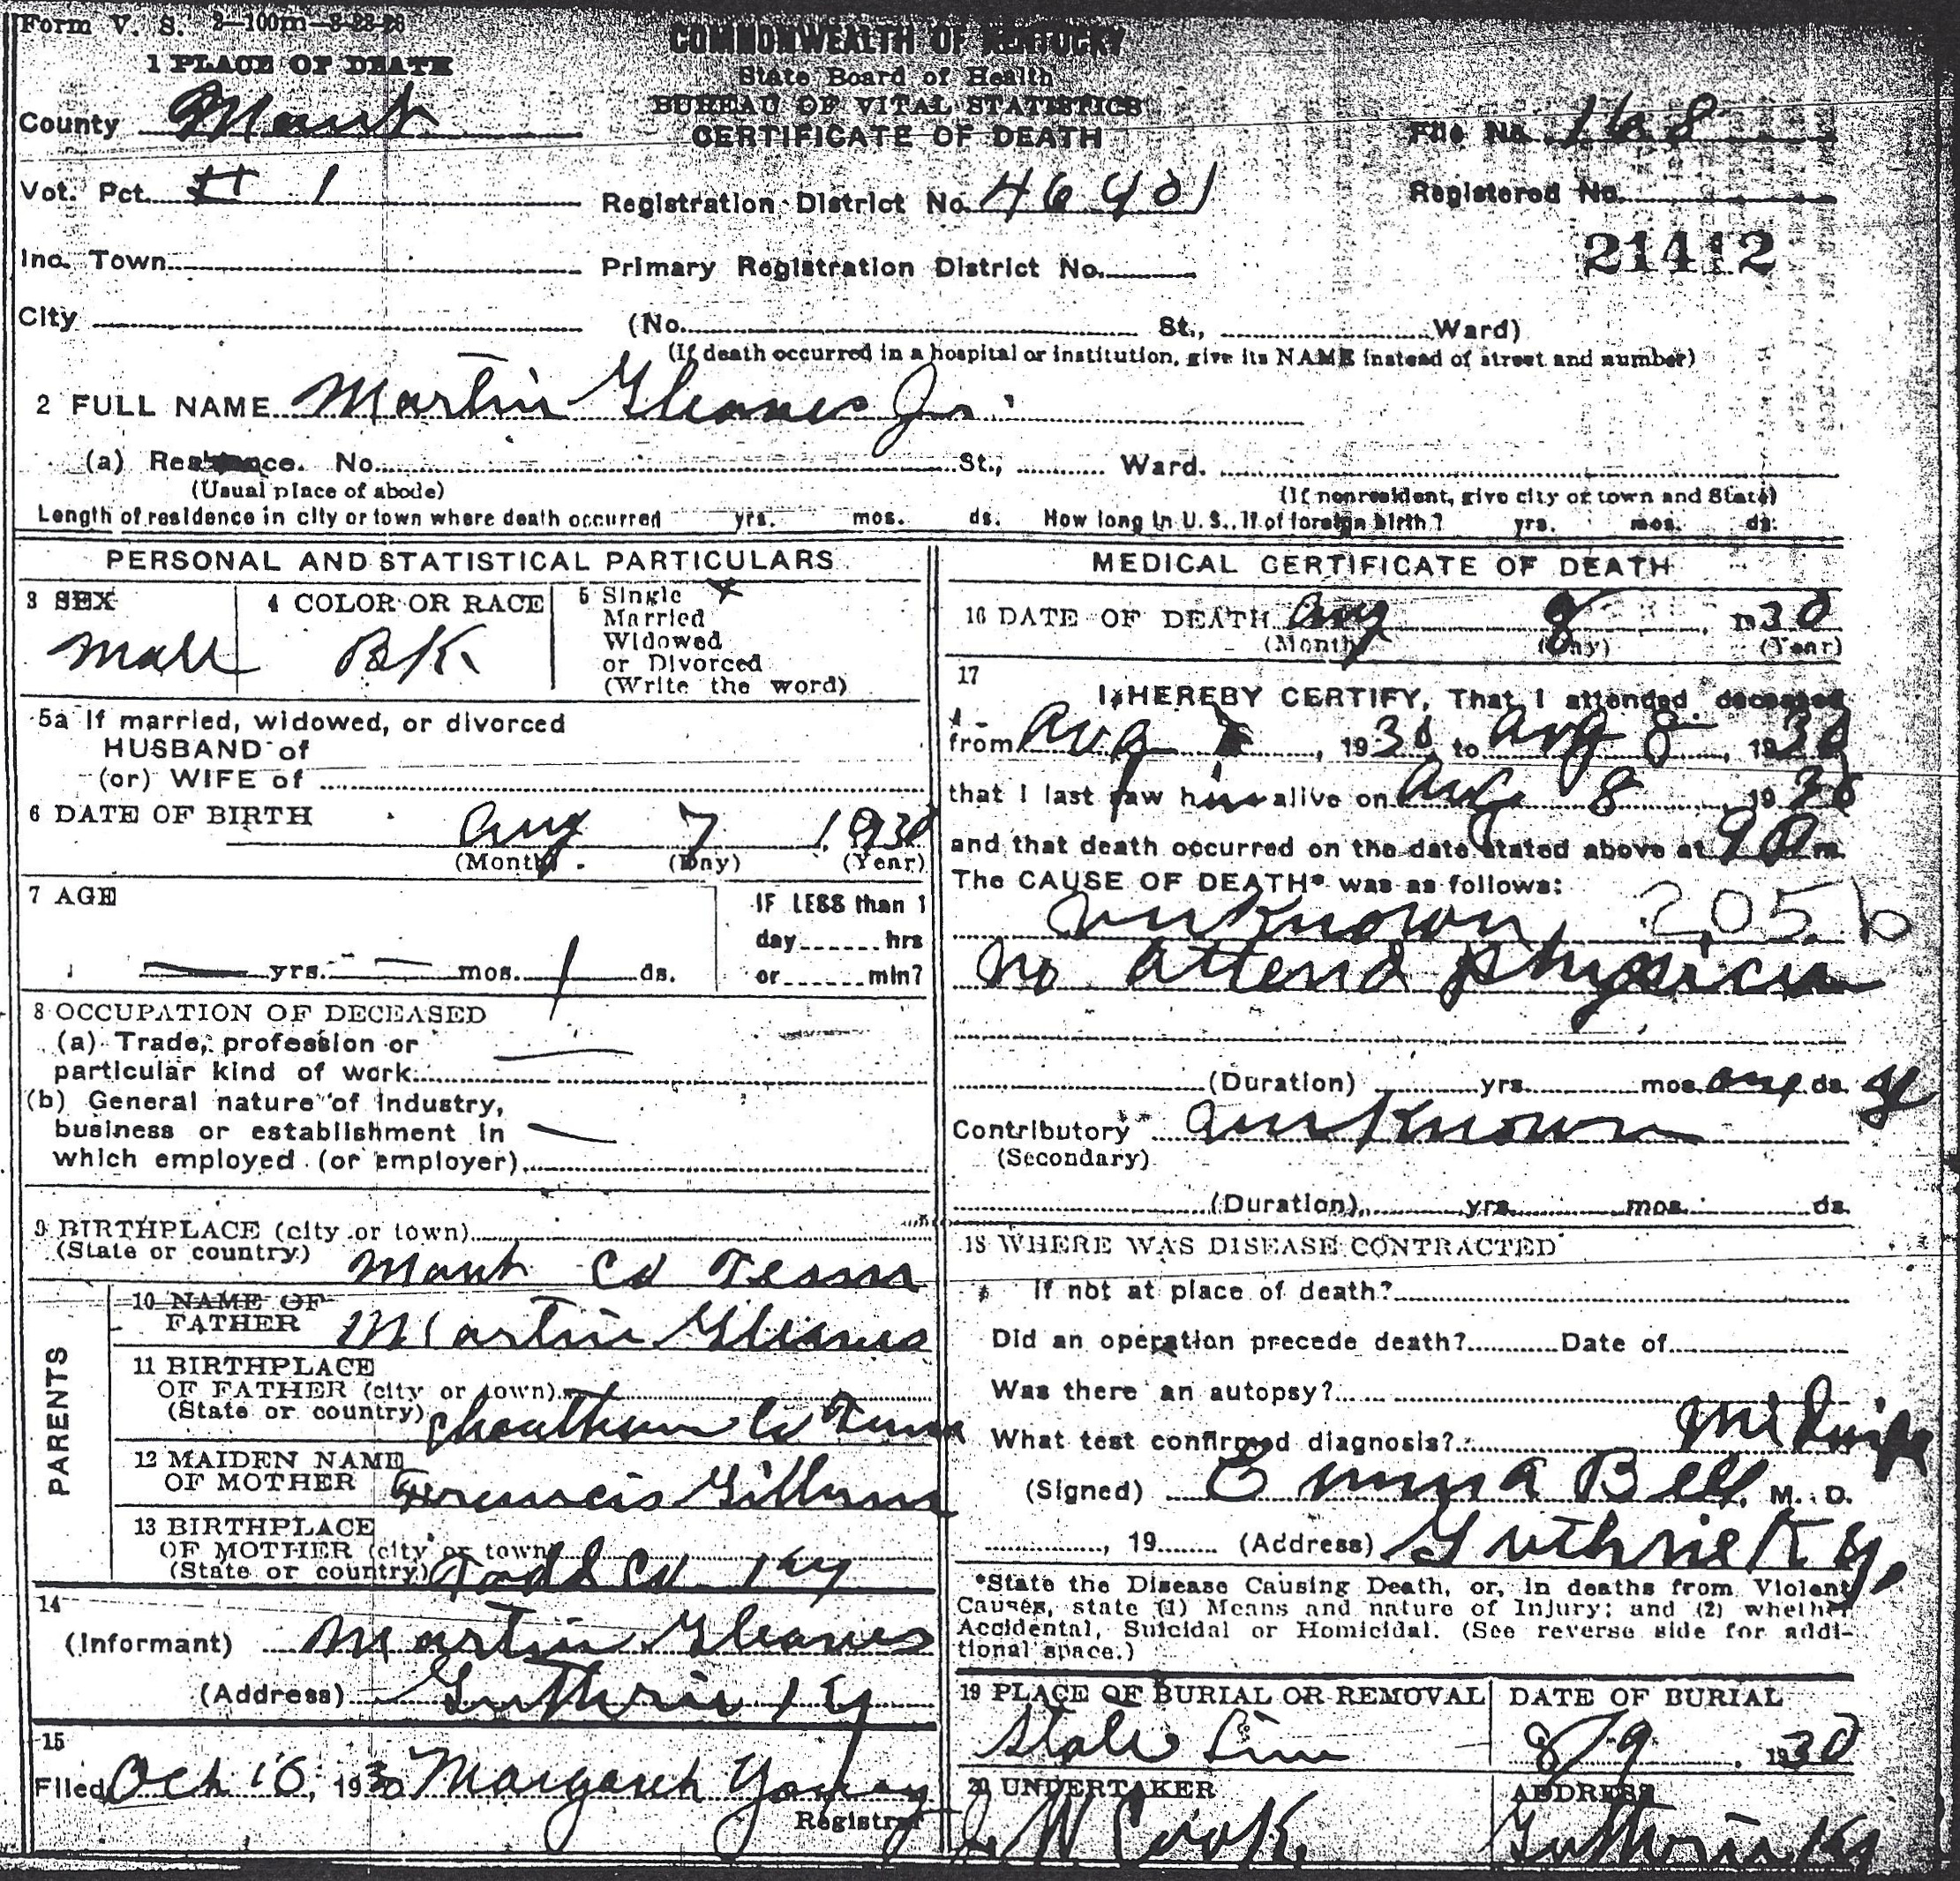 Form V. S. 2-100m-8-23-28
COMMONWEALTH OF KENTUCKY
State Board of Health
BUREAU OF VITAL STATISTICS
CERTIFICATE OF DEATH
1 PLACE OF DEATH
County Mont
File No. 168
Vot. Pct. # 1
Registration District No. 46401
Registered No.
21412
Inc. Town
Primary Registration District No.
City
(No. St., Ward)
(If death occurred in a hospital or institution, give its NAME instead of street and number)
2 FULL NAME Martin Gleaves Jr.
(a) Residence. No. St., Ward.
(Usual place of abode) (If nonresident, give city or town and State)
Length of residence in city or town where death occurred yrs. mos. ds. How long in U. S., if of foreign birth? yrs. mos. ds.
PERSONAL AND STATISTICAL PARTICULARS
3 SEX
Male
4 COLOR OR RACE
BK.
5 Single x
Married
Widowed
or Divorced
(Write the word)
5a If married, widowed, or divorced
HUSBAND of
(or) WIFE of
6 DATE OF BIRTH Aug 7 1930
(Month) (Day) (Year)
7 AGE
— yrs. — mos. 1 ds.
IF LESS than 1
day hrs
or min?
8 OCCUPATION OF DECEASED
(a) Trade, profession or
particular kind of work —
(b) General nature of industry,
business or establishment in
which employed (or employer) —
9 BIRTHPLACE (city or town)
(State or country) Mont Co Tenn
PARENTS
10 NAME OF
FATHER Martin Gleaves
11 BIRTHPLACE
OF FATHER (city or town)
(State or country) Cheatham Co Tenn
12 MAIDEN NAME
OF MOTHER Francis Gillum
13 BIRTHPLACE
OF MOTHER (city or town)
(State or country) Todd Co Ky
14
(Informant) Martin Gleaves
(Address) Guthrie Ky
15
Filed Oct 10, 1930 Margaret Young
Registrar
MEDICAL CERTIFICATE OF DEATH
16 DATE OF DEATH Aug 8, 1930
(Month) (Day) (Year)
17
I HEREBY CERTIFY, That I attended deceased
from Aug , 1930 to Aug 8, 1930
that I last saw him alive on Aug 8 1930
and that death occurred on the date stated above at 9 a m.
The CAUSE OF DEATH* was as follows:
unknown 205 b
no attend physician
(Duration) yrs. mos. ds.
Contributory unknown
(Secondary)
(Duration) yrs. mos. ds.
18 WHERE WAS DISEASE CONTRACTED
If not at place of death?
Did an operation precede death? Date of
Was there an autopsy?
What test confirmed diagnosis? Midwife
(Signed) Emma Bell, M. D.
, 19 (Address) Guthrie Ky.
*State the Disease Causing Death, or, in deaths from Violent
Causes, state (1) Means and nature of Injury; and (2) whether
Accidental, Suicidal or Homicidal. (See reverse side for addi-
tional space.)
19 PLACE OF BURIAL OR REMOVAL
State Line
DATE OF BURIAL
8/9, 1930
20 UNDERTAKER
J. W Cook
ADDRESS
Guthrie Ky